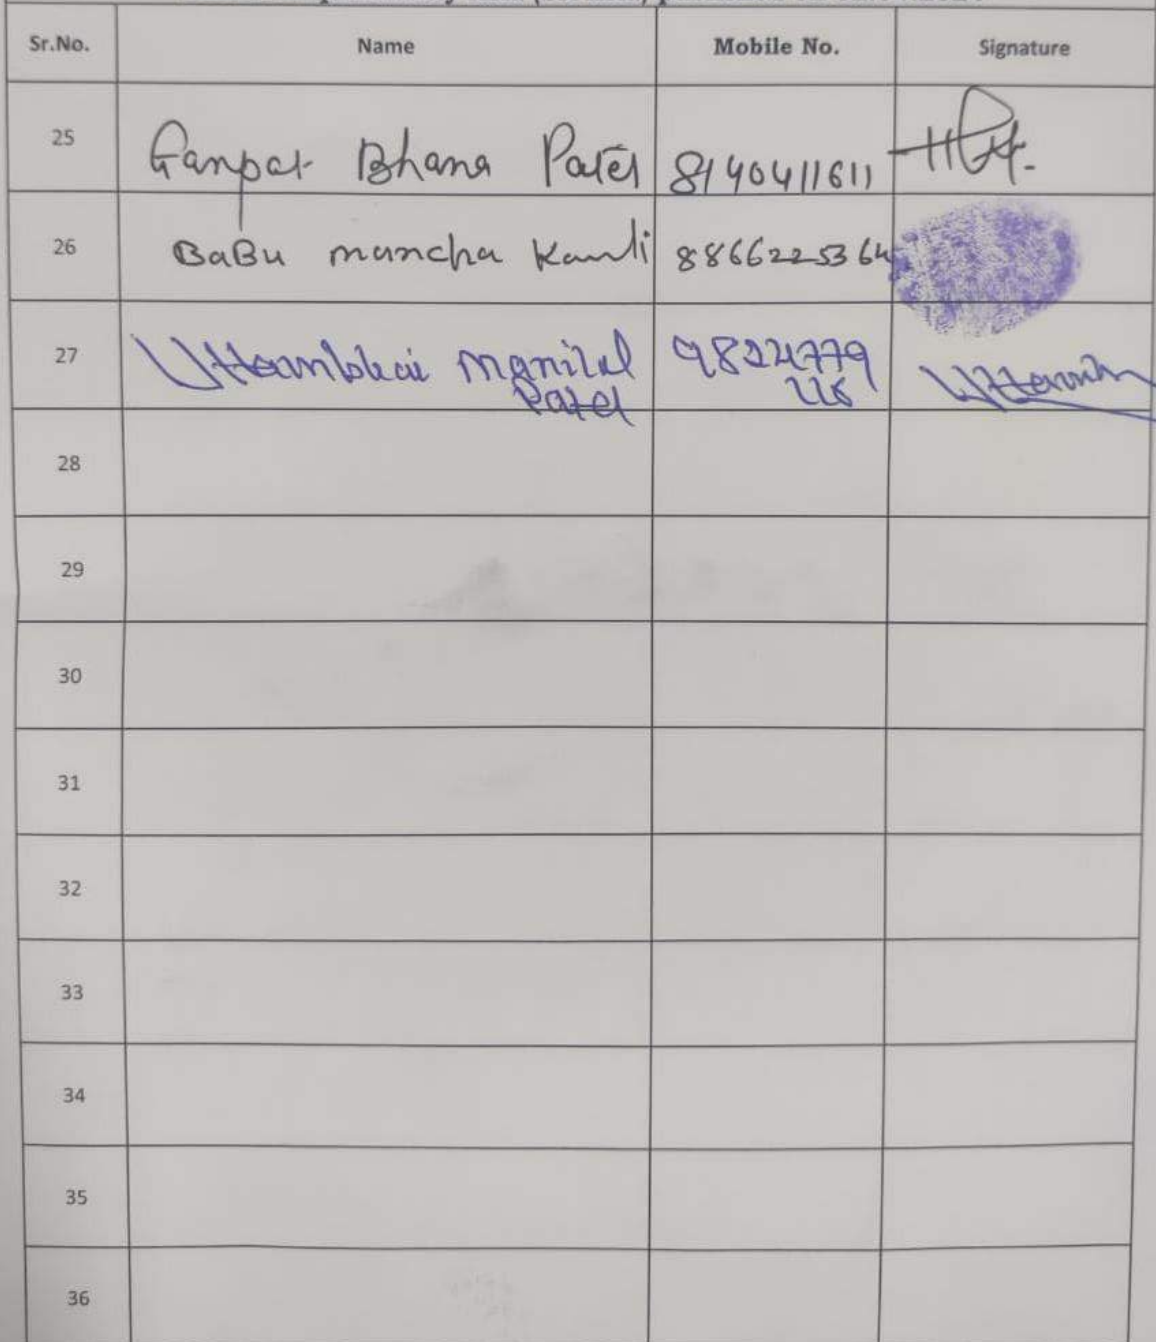 Sr.No. Name Mobile No. Signature
25 Ganpat Bhana Patel 8140411611
26 BaBu mancha 8866225364
27 Uttambhai Manilal 9824779 Uttambh
Patel
28
29
30
31
32
33
34
35
36